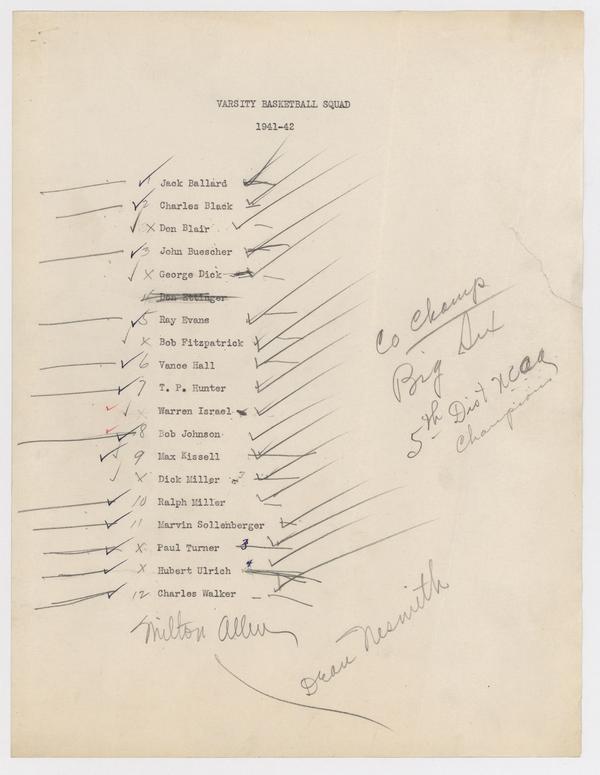 VARSITY BASKETBALL SQUAD
1941-42
✓1 Jack Ballard ✓
✓2 Charles Black ✓
✓ X Don Blair ✓
✓3 John Buescher ✓
✓ X George Dick
4 Don Ettinger
✓5 Ray Evans ✓
✓ X Bob Fitzpatrick ✓
✓6 Vance Hall ✓
✓7 T. P. Hunter ✓
✓ ✓ X Warren Israel ✓
✓ ✓8 Bob Johnson ✓
✓ 9 Max Kissell ✓
✓ X Dick Miller 3 ✓
✓ 10 Ralph Miller ✓
✓ 11 Marvin Sollenberger ✓
✓ X Paul Turner 3 ✓
✓ X Hubert Ulrich 4 ✓
✓ 12 Charles Walker ✓
Milton Allen
Dean Nesmith
Co Champ
Big Six
5th Dist NCAA
Champions